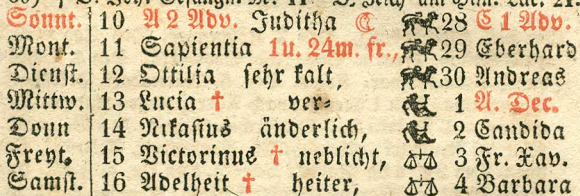 Sonnt. 10 A 2 Adv. Juditha ☾ 28 C 1 Adv.
Mont. 11 Sapientia 1u. 24m. fr., 29 Eberhard
Dienst. 12 Ottilia sehr kalt, 30 Andreas
Mittw. 13 Lucia † ver= 1 A. Dec.
Donn 14 Nikasius änderlich, 2 Candida
Freyt. 15 Victorinus † neblicht, 3 Fr. Xav.
Samst. 16 Adelheit † heiter, 4 Barbara